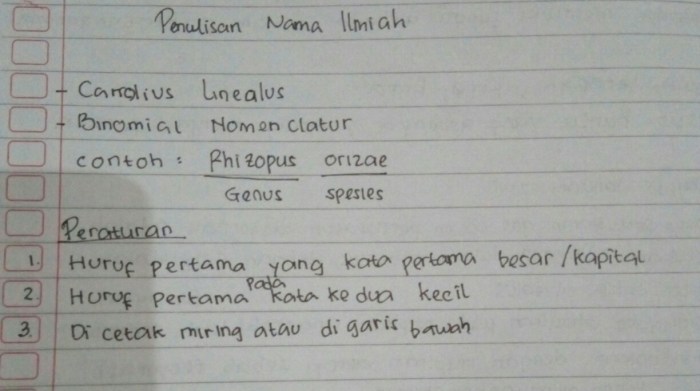 Penulisan Nama Ilmiah
- Carrolius Linealus
- Binomial Nomen clatur
contoh : Rhizopus orizae
Genus spesies
Peraturan
1. Huruf pertama yang kata pertama besar/kapital
2. Huruf pertama pada kata ke dua kecil
3. Di cetak miring atau di garis bawah